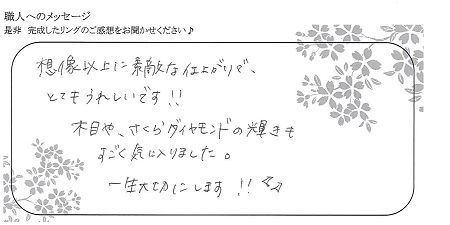 職人へのメッセージ
是非 完成したリングのご感想をお聞かせください♪
想像以上に素敵な仕上がりで、
とてもうれしいです!!
木目や、さくらダイヤモンドの輝きも
すごく気に入りました。
一生大切にします!!